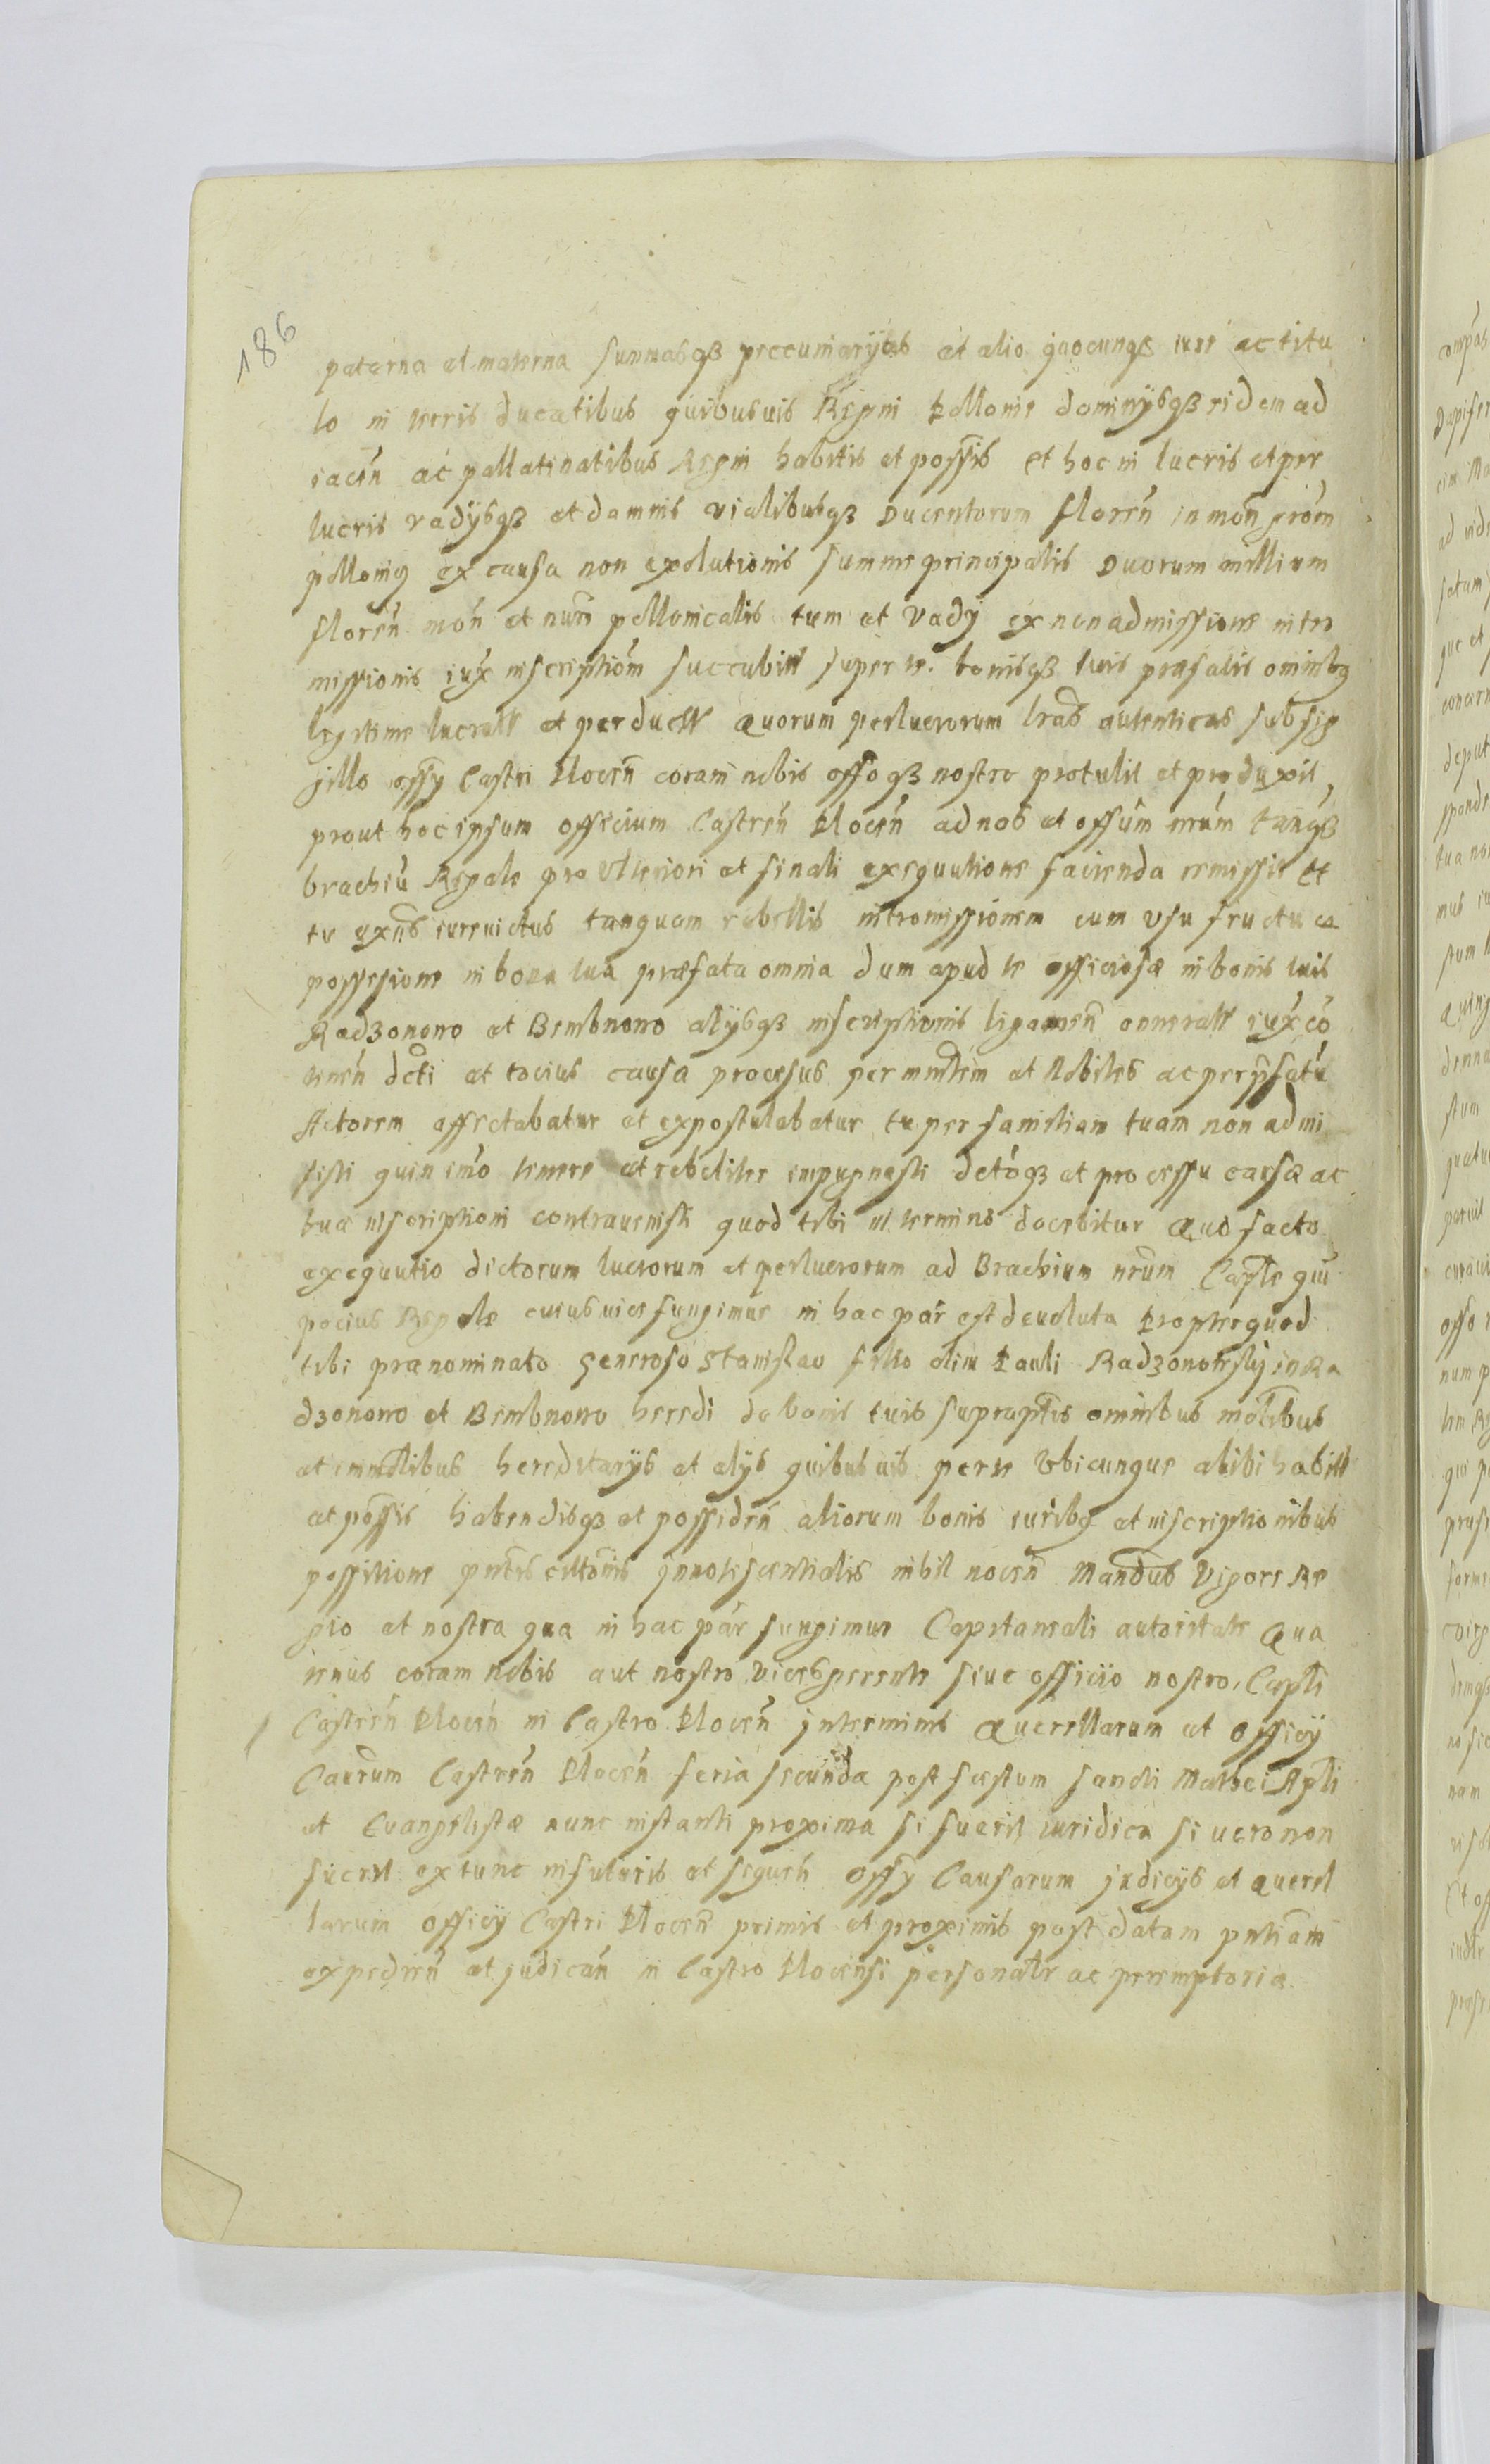 186
paterna et materna summasqȝ peccuniarijs et alio quocunqȝ iure ac titu
lo in terris ducatibus quibusuis Regni Pollonie dominijsqȝ eidem ad
iaceñ ac pallatinatibus Regni habitis et poss̃is et hoc in lucris et per
lucris vadijsqȝ et damnis vialibusqȝ Ducentorum floreñ in moñ
ex causa non exolutionis summe principalis Duorum millium
floreñ moñ et nuri pollonicalis tum et vadij ex non admissione intro
missionis iux̃ inscriptiom̃ succubit super te bonisqȝ tuis præfatis omnibq
legitime et perduct Quorum perlucrorum lras̃ autenticas sub sig
gillo offy Castri Ploceñ coram nobis offoqȝ nostro protulit et produxit,
prout hoc ipsum officium Castreñ Ploceñ ad nos et offũm nrũm tanqȝ
brachiũ Regale pro vlteriori et finali exequutione facienda remissit Et
tu iureuictus tanquam rebellis intromissionem cum vsufructu ca
possesione in bona tua præfata omnia dum apud te officiose in bonis tuis
Radzonowo et Bembnowo alijsqȝ inscriptionis ligameñ onnerat iux̃ cõ
teneñ dcti et tocius causa procesus per minrẽm et Nobiles ac per pfatũ
Actorem affectabatur et expostulabatur tu per familiam tuam non admi
sisti quin imo temere et rebeliter impugnasti detoqȝ et processu causæ ac
tuæ inscriptioni contrauenisti quod tibi in termino docebitur Quo facto
exequutio dictorum lucrorum et perlucrorum ad Brachium nrũm Captle quĩ
pocius Regale cuius vice fungimur in hac par̃ est deuoluta Propterquod
tibi prænominato generoso Stanislao filio olim Pauli Radzonowsky in Ra
dzonowo et Bembnowo heredi de bonis tuis supraptis omnibus mobibus
et immobilibus hereditarijs et alijs quibusuis per te vbicunque alibi habit
et poss̃is habendisqȝ et possideñ aliorum bonis iuribq et inscriptionibus
possitione pntis citonis innotescentialis nihil noceñ Manduš vigore Re
gio et nostra qua in hac par̃ fungimur Capitaneali autoritate Qua
tenus coram nobis aut nostro vicesgerente siue officio nostro Captli
Castreñ Ploceñ in Castro Ploceñ in terminis Querellarum et officij
Caurũm Castreñ Ploceñ feria secunda post fæstum sancti Mathei Aptli
et Euangelistæ nunc instanti proxima si fuerit iuridica si uero non
fuerit extunc in futuris et sequeñ offy Causarum judicijs et querel
larum officij Castri Ploceñ primis et proximis post datam pntiam̃
expedieñ et judicañ in Castro Plocensi personalr ac peremptorie